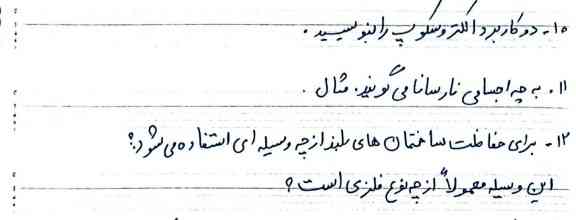 ۱۰- دو کاربرد الکتروسکوپ را بنویسید.
۱۱. به چه اجسامی نارسانا می گویند. مثال.
۱۲- برای حفاظت ساختمان های بلند از چه وسیله ای استفاده می شود؟
این وسیله معمولاً از چه نوع فلزی است؟